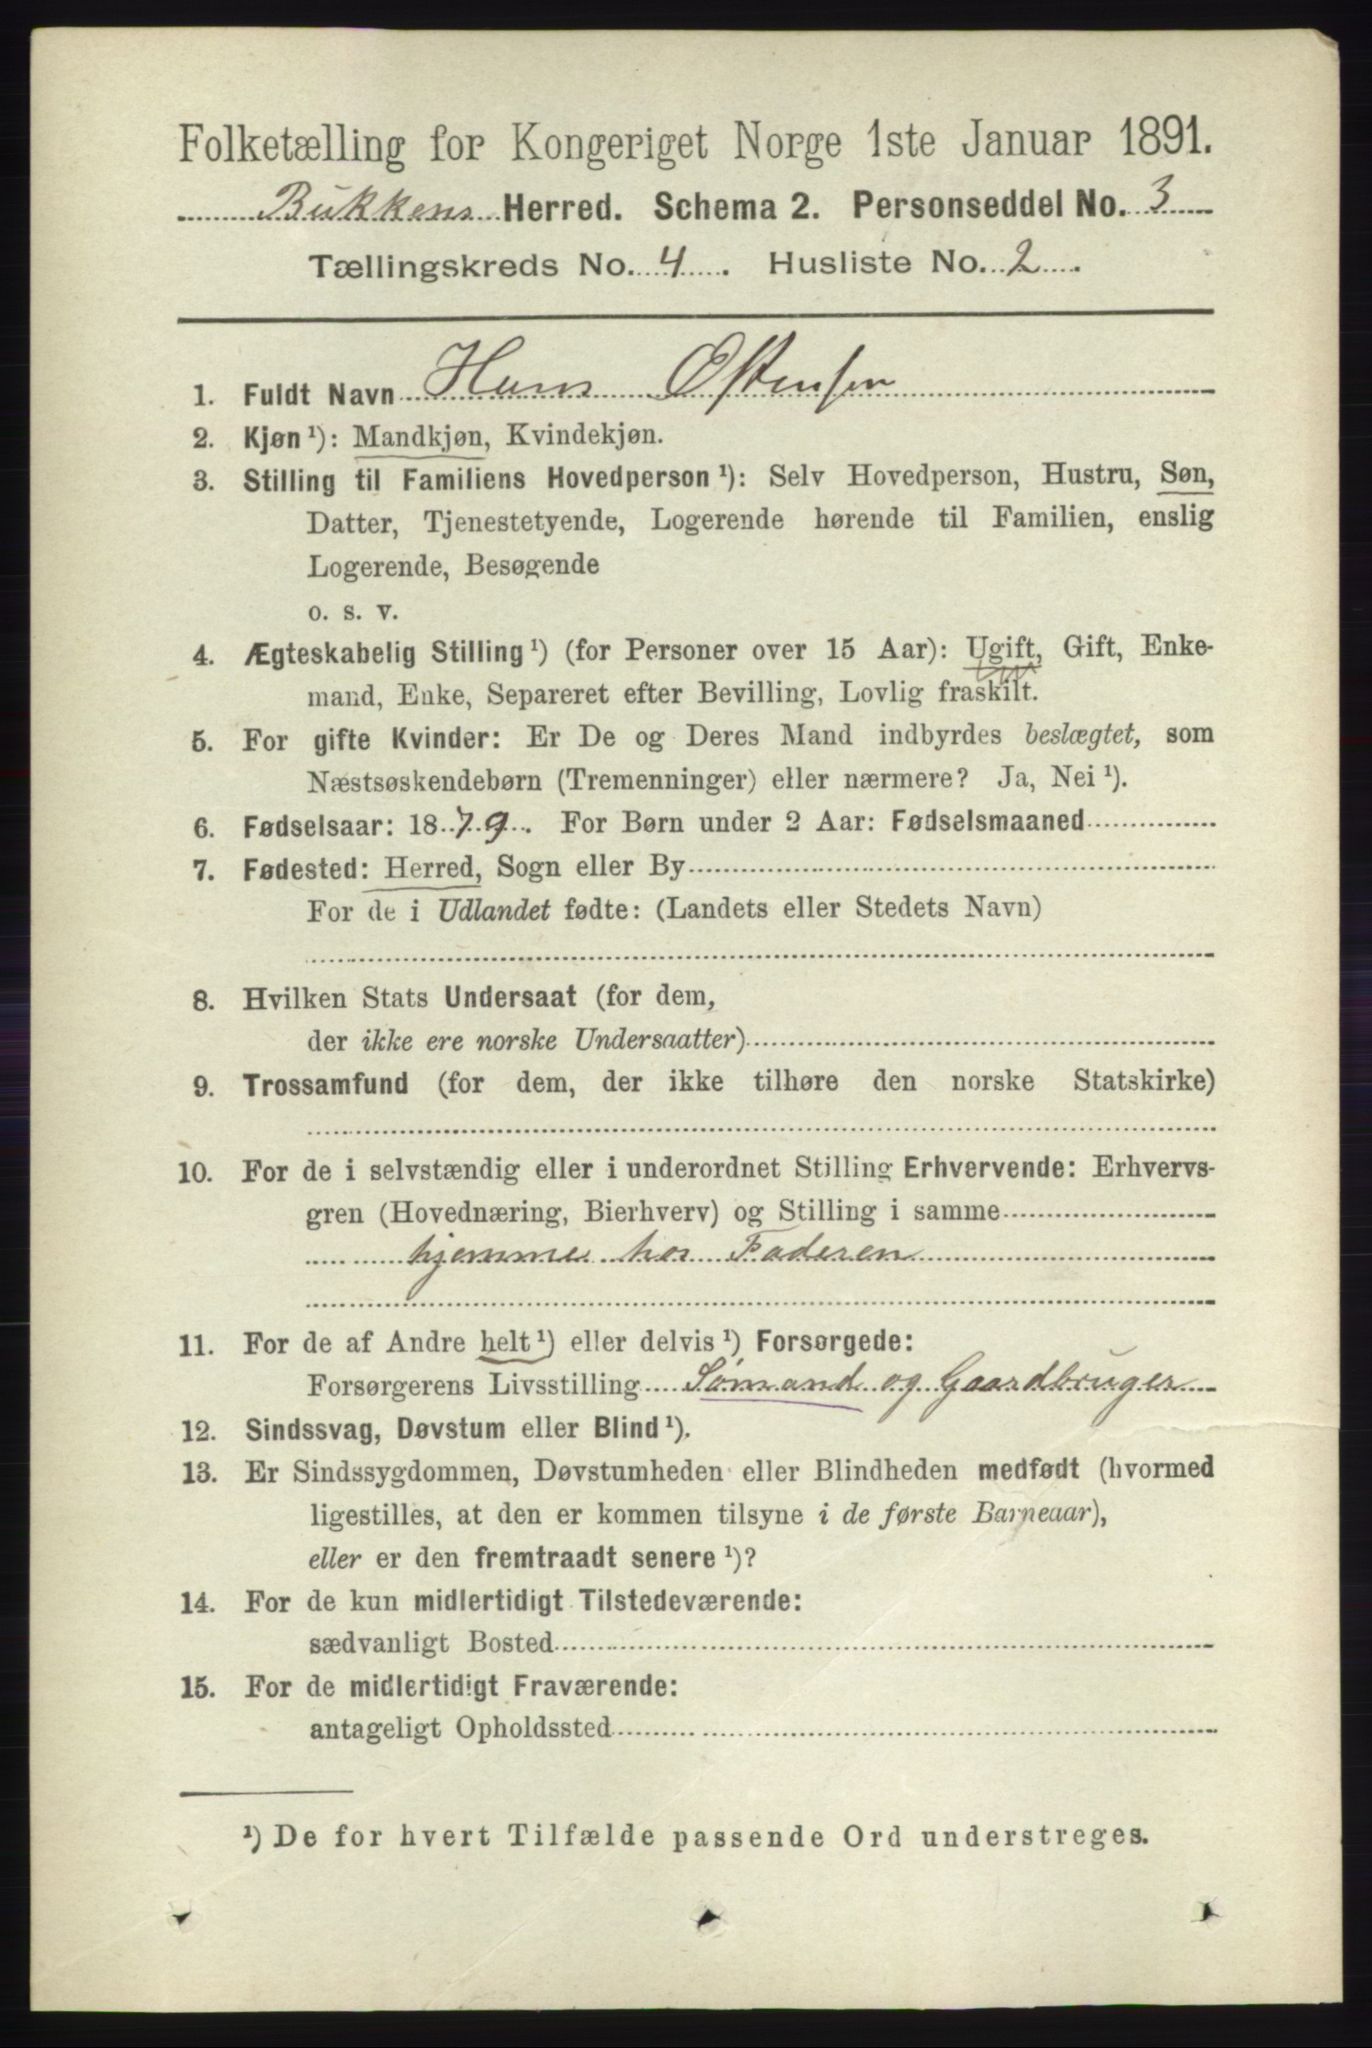 Folketælling for Kongeriget Norge 1ste Januar 1891.
Bukkens Herred. Schema 2. Personseddel No. 3
Tællingskreds No. 4. Husliste No. 2.
1. Fuldt Navn Hans Østensen
2. Kjøn ¹): Mandkjøn, Kvindekjøn.
3. Stilling til Familiens Hovedperson ¹): Selv Hovedperson, Hustru, Søn,
Datter, Tjenestetyende, Logerende hørende til Familien, enslig
Logerende, Besøgende
o. s. v.
4. Ægteskabelig Stilling ¹) (for Personer over 15 Aar): Ugift, Gift, Enke-
mand, Enke, Separeret efter Bevilling, Lovlig fraskilt.
5. For gifte Kvinder: Er De og Deres Mand indbyrdes beslægtet, som
Næstsøskendebørn (Tremenninger) eller nærmere? Ja, Nei ¹).
6. Fødselsaar: 1879. For Børn under 2 Aar: Fødselsmaaned
7. Fødested: Herred, Sogn eller By
For de i Udlandet fødte: (Landets eller Stedets Navn)
8. Hvilken Stats Undersaat (for dem,
der ikke ere norske Undersaatter)
9. Trossamfund (for dem, der ikke tilhøre den norske Statskirke)
10. For de i selvstændig eller i underordnet Stilling Erhvervende: Erhvervs-
gren (Hovednæring, Bierhverv) og Stilling i samme
hjemme hos Faderen
11. For de af Andre helt ¹) eller delvis ¹) Forsørgede:
Forsørgerens Livsstilling Sømand og Gaardbruger
12. Sindssvag, Døvstum eller Blind ¹).
13. Er Sindssygdommen, Døvstumheden eller Blindheden medfødt (hvormed
ligestilles, at den er kommen tilsyne i de første Barneaar),
eller er den fremtraadt senere ¹)?
14. For de kun midlertidigt Tilstedeværende:
sædvanligt Bosted
15. For de midlertidigt Fraværende:
antageligt Opholdssted
¹) De for hvert Tilfælde passende Ord understreges.